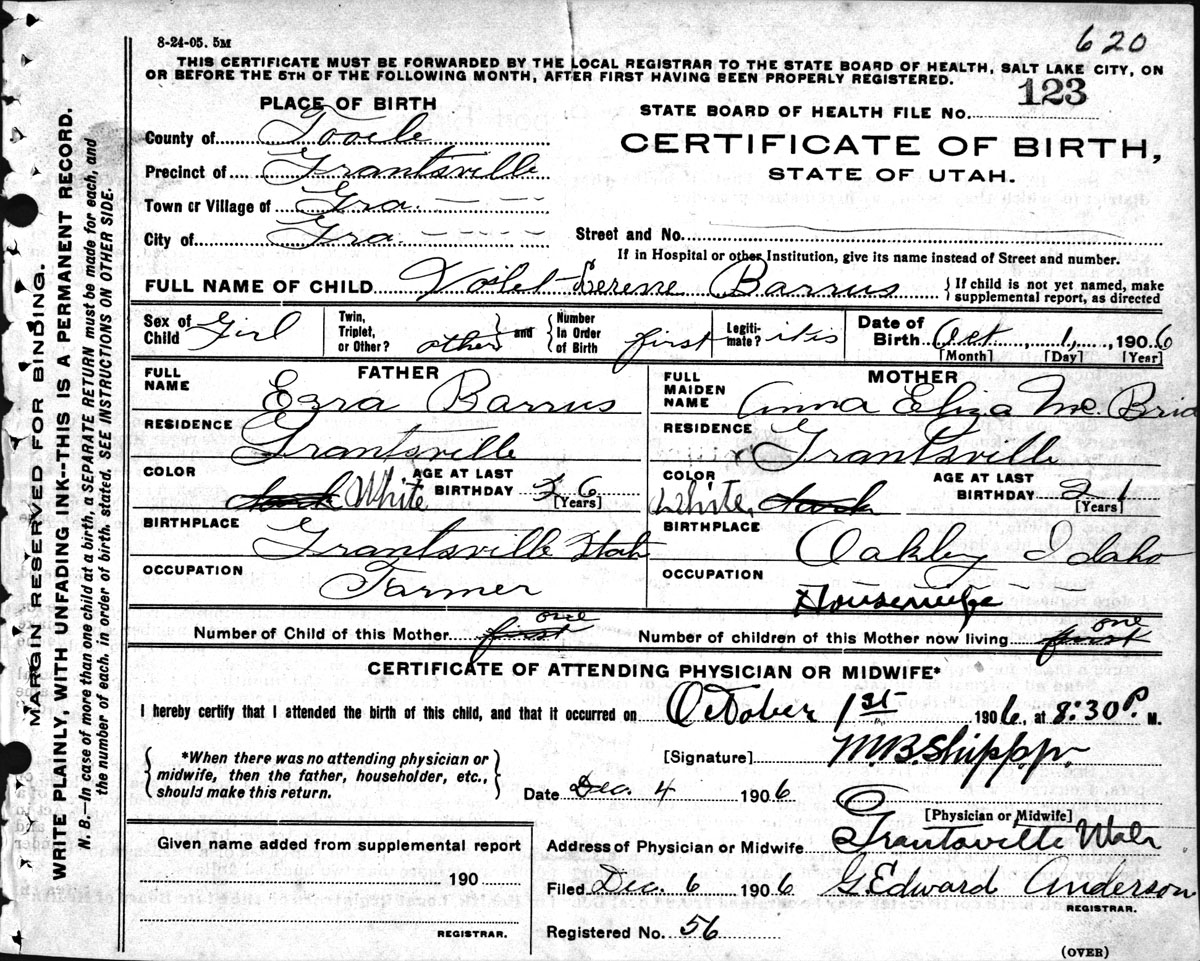 8-24-05. 5M
620
THIS CERTIFICATE MUST BE FORWARDED BY THE LOCAL REGISTRAR TO THE STATE BOARD OF HEALTH, SALT LAKE CITY, ON
OR BEFORE THE 5TH OF THE FOLLOWING MONTH, AFTER FIRST HAVING BEEN PROPERLY REGISTERED.
MARGIN RESERVED FOR BINDING.
WRITE PLAINLY, WITH UNFADING INK--THIS IS A PERMANENT RECORD.
N. B.—In case of more than one child at a birth, a SEPARATE RETURN must be made for each, and
the number of each, in order of birth, stated. SEE INSTRUCTIONS ON OTHER SIDE.
PLACE OF BIRTH
County of Tooele
Precinct of Grantsville
Town or Village of Gra. — — —
City of Gra. — — —
STATE BOARD OF HEALTH FILE No. 123
CERTIFICATE OF BIRTH,
STATE OF UTAH.
Street and No.
If in Hospital or other Institution, give its name instead of Street and number.
FULL NAME OF CHILD Barrus { If child is not yet named, make
supplemental report, as directed
Sex of Child Girl
Twin, Triplet, or Other? other } and { Number In Order of Birth first
Legiti-mate? it is
Date of Birth Oct. 1, 1906
[Month] [Day] [Year]
FATHER
FULL NAME Ezra Barrus
RESIDENCE Grantsville
COLOR White
AGE AT LAST BIRTHDAY 26
[Years]
BIRTHPLACE Grantsville Utah
OCCUPATION Farmer
MOTHER
FULL MAIDEN NAME Anna Eliza Mc. Brid
RESIDENCE Grantsville
COLOR White,
AGE AT LAST BIRTHDAY 21
[Years]
BIRTHPLACE Oakley Idaho
OCCUPATION Housewife
Number of Child of this Mother first one
Number of children of this Mother now living first one
CERTIFICATE OF ATTENDING PHYSICIAN OR MIDWIFE*
I hereby certify that I attended the birth of this child, and that it occurred on October 1st 1906, at 8:30 P. M.
{ *When there was no attending physician or
midwife, then the father, householder, etc.,
should make this return. }
[Signature] M.B. Shipp jr.
Date Dec. 4 1906
[Physician or Midwife]
Address of Physician or Midwife Grantsville Utah
Filed Dec. 6 1906 G. Edward Anderson
REGISTRAR.
Registered No. 56
Given name added from supplemental report
190
REGISTRAR.
(OVER)